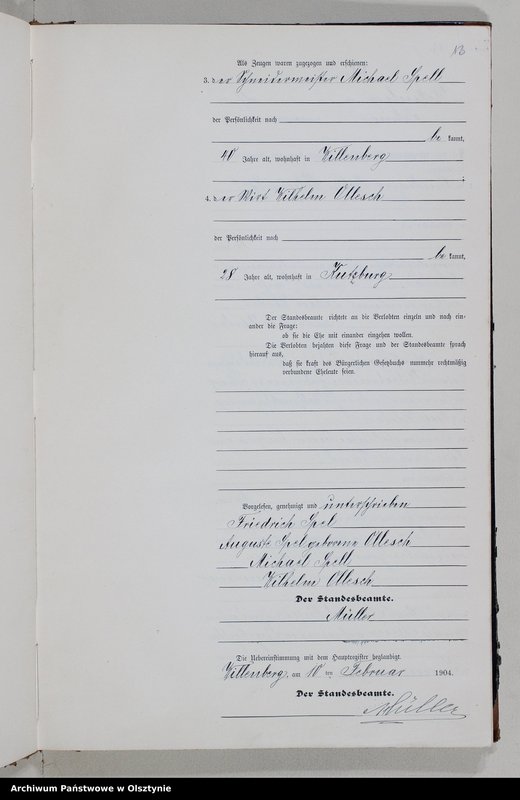 13
Als Zeugen waren zugezogen und erschienen:
3. der Schneidermeister Michael Spell
der Persönlichkeit nach
be kannt,
40 Jahre alt, wohnhaft in Willenberg
;
4. der Wirt Wilhelm Ollesch
der Persönlichkeit nach
be kannt,
28 Jahre alt, wohnhaft in Kutzburg
Der Standesbeamte richtete an die Verlobten einzeln und nach ein-
ander die Frage:
ob sie die Ehe mit einander eingehen wollen.
Die Verlobten bejahten diese Frage und der Standesbeamte sprach
hierauf aus,
daß sie kraft des Bürgerlichen Gesetzbuchs nunmehr rechtmäßig
verbundene Eheleute seien.
Vorgelesen, genehmigt und unterschrieben
Friedrich Spel
Auguste Spel geborene Ollesch
Michael Spell
Wilhelm Ollesch
Der Standesbeamte.
Müller
Die Uebereinstimmung mit dem Hauptregister beglaubigt.
Willenberg, am 10 ten Februar 1904.
Der Standesbeamte.
Müller
Archiwum Państwowe w Olsztynie